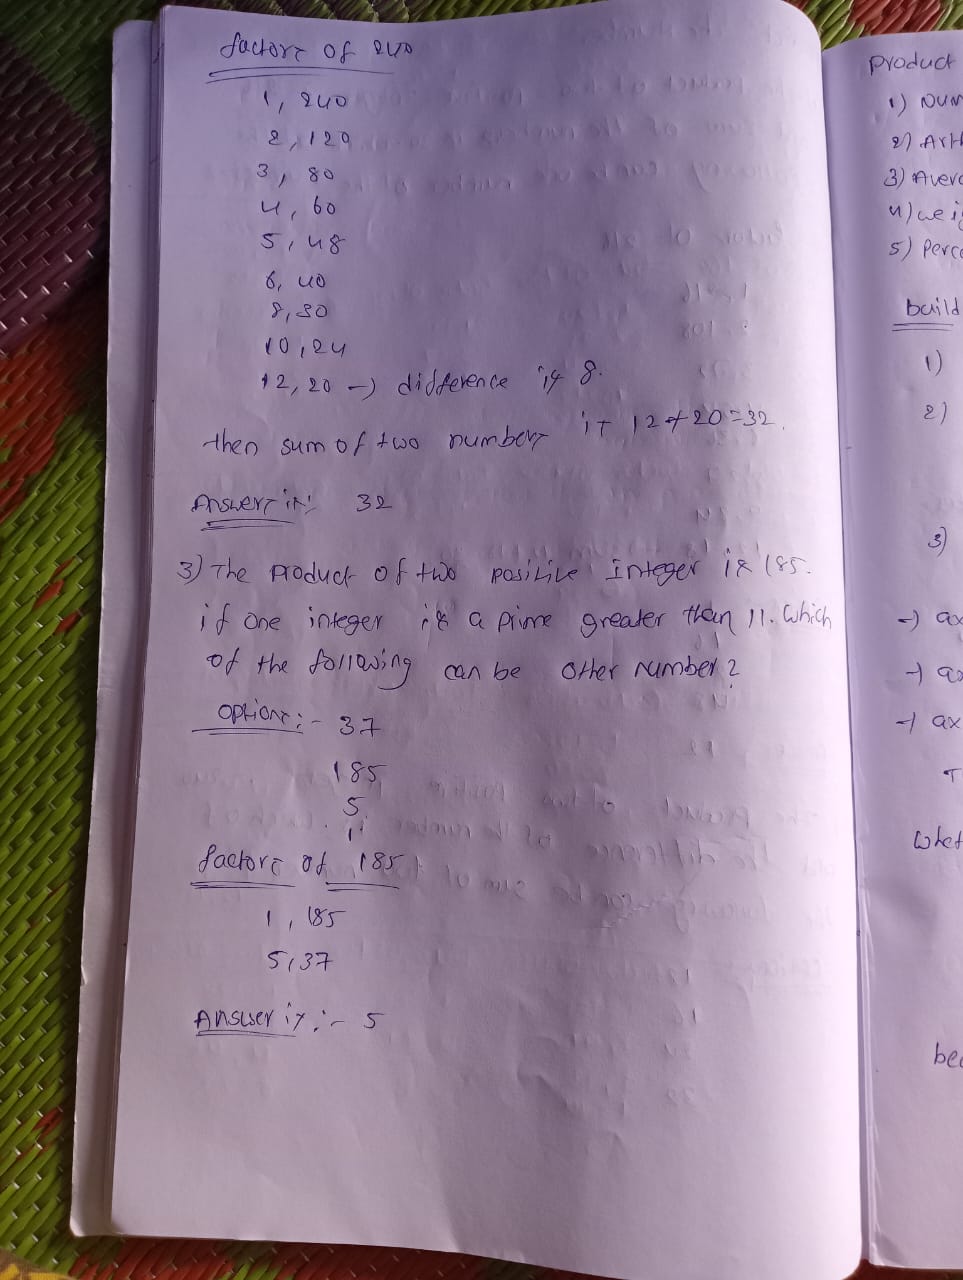 factors of 240
1, 240
2, 120
3, 80
4, 60
5, 48
6, 40
8, 30
10, 24
12, 20 → difference is 8.
then sum of two numbers is 12+20=32.
Answer is: 32
3) The product of two positive Integer is 185.
if one integer is a prime greater than 11. which
of the following can be other number?
options:- 37
185
5
11
factors of 185
1, 185
5, 37
Answer is:- 5
product
1)
2)
3)
4)
5)
build
1)
2)
3)
→ ax
→ ax
→ ax